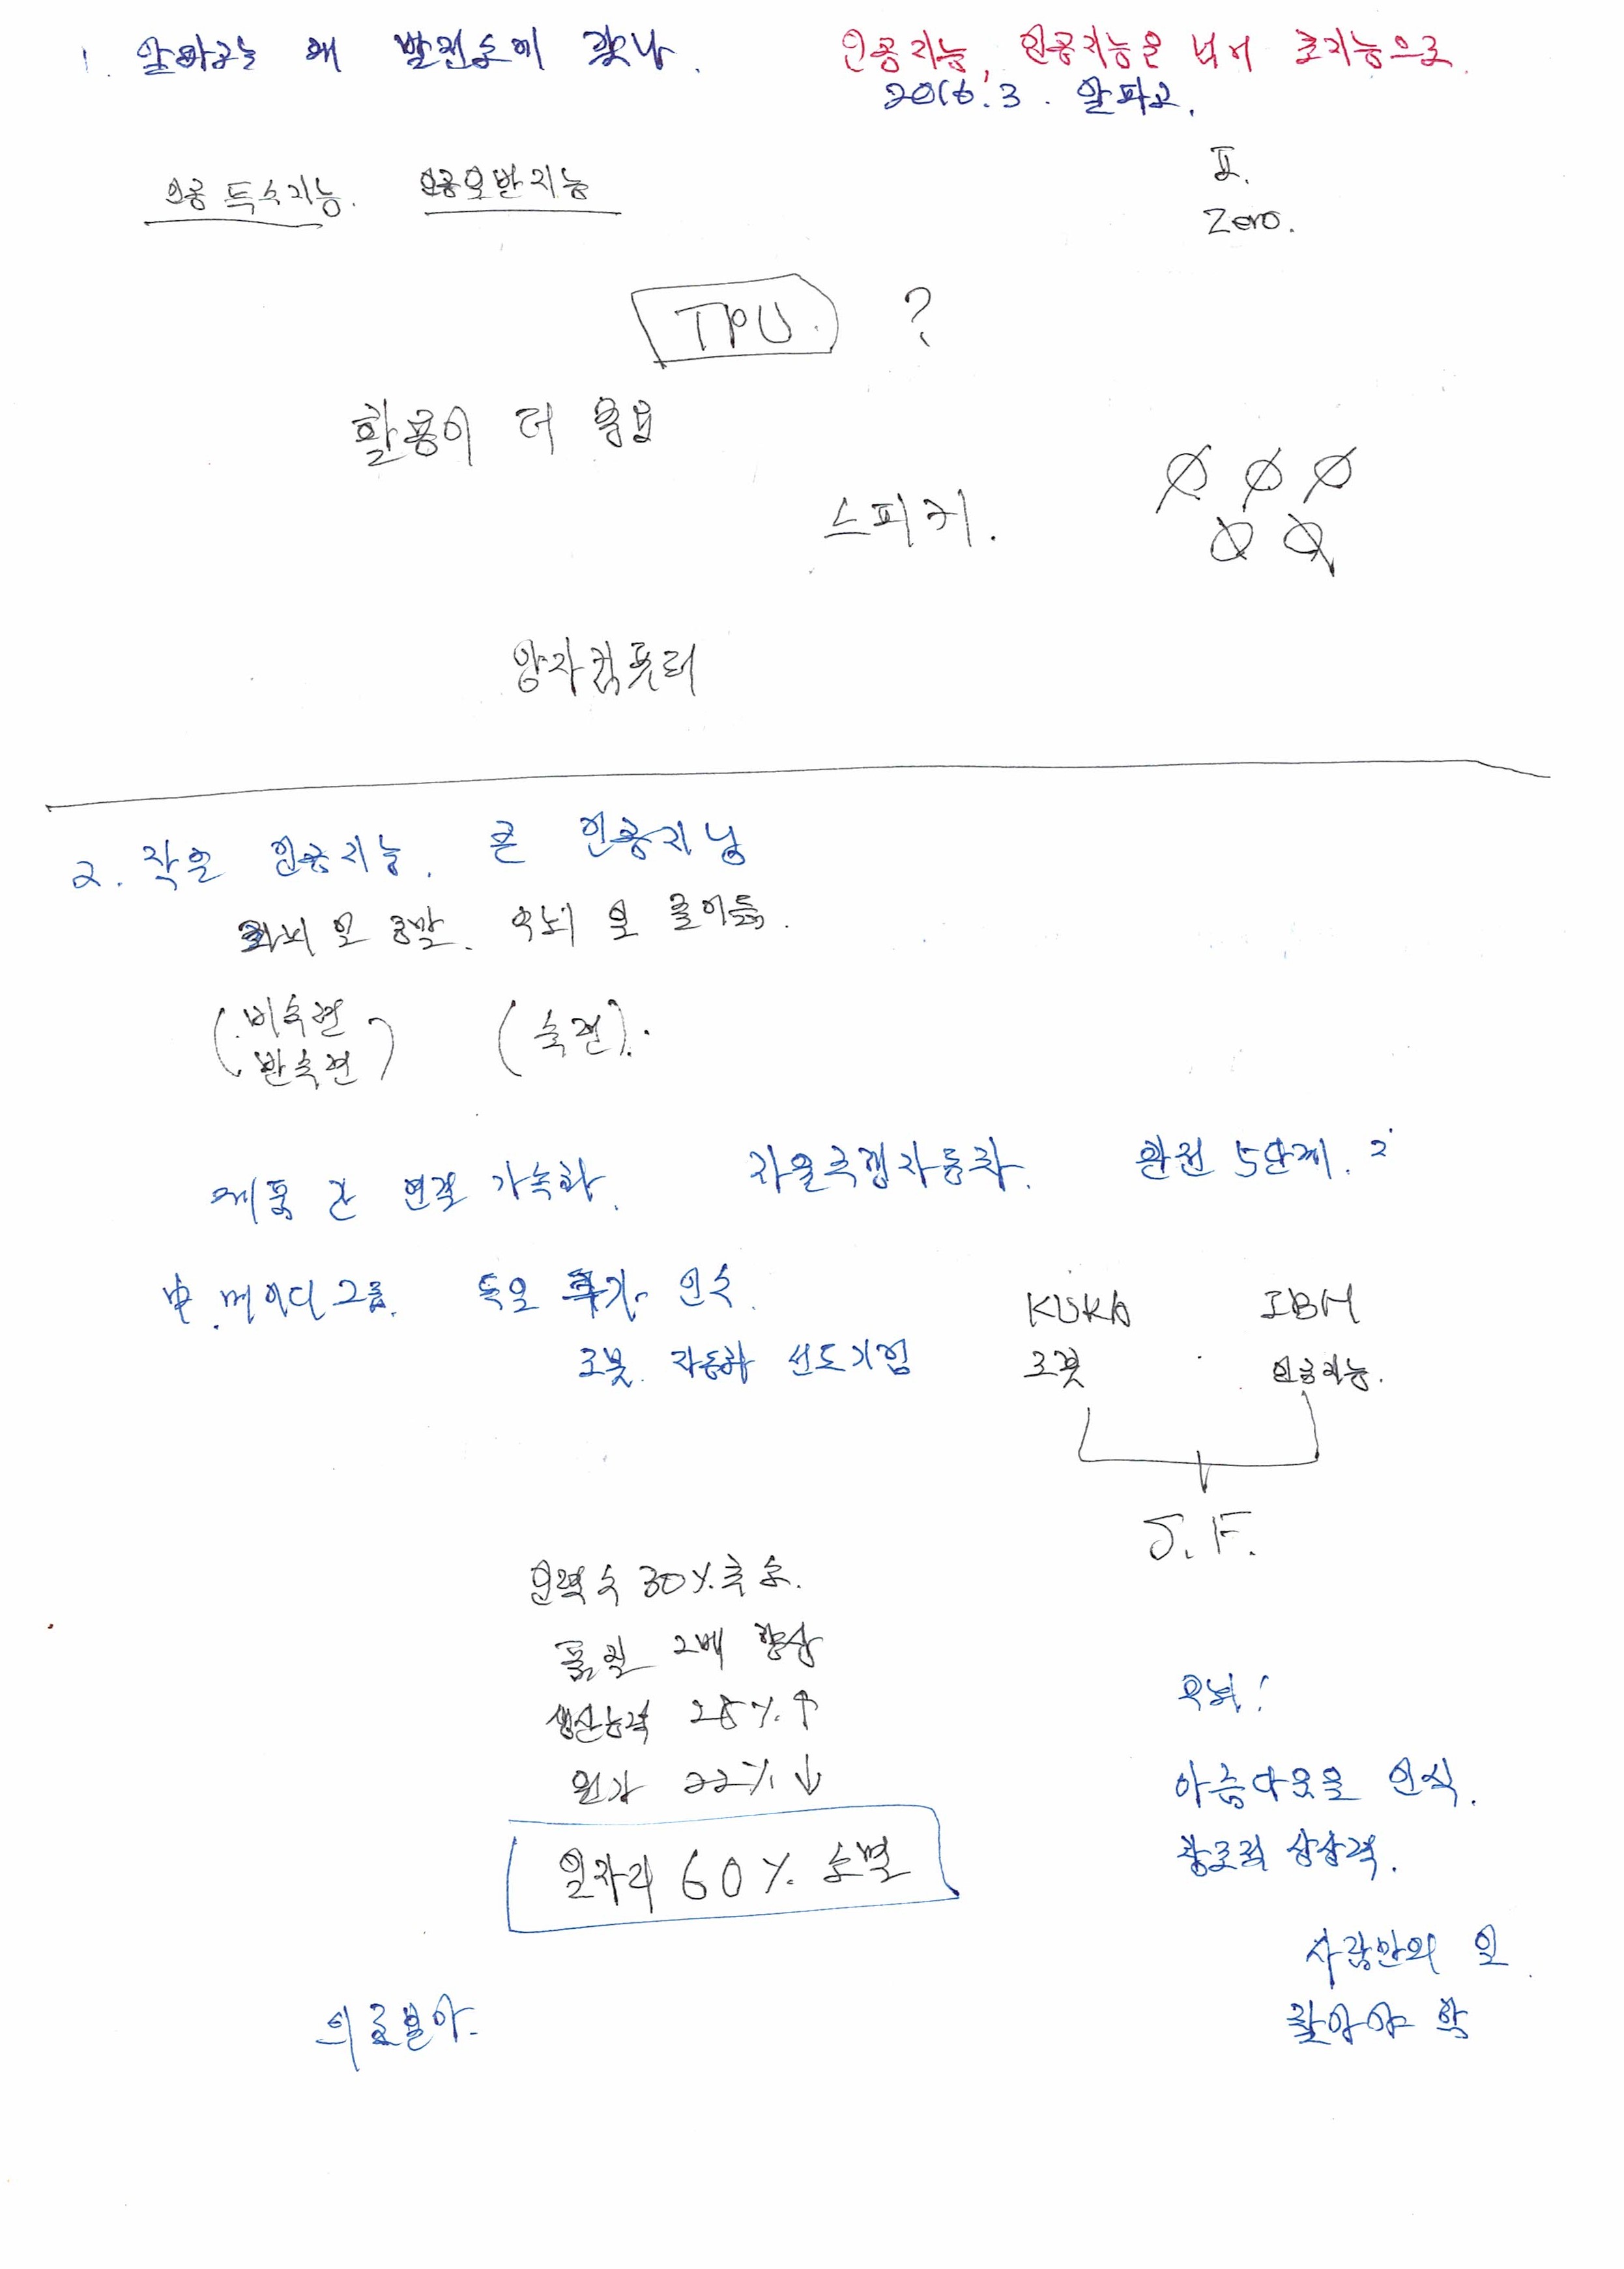 1. 알파고는 왜 발전소에 갔나.
인공지능, 인공지능을 넘어 초지능으로.
2016.3. 알파고.
인공특수지능. 인공일반지능
II.
Zero.
TPU. ?
활용이 더 중요
스피커.
양자컴퓨터
2. 작은 인공지능. 큰 인공지능
좌뇌 일 증발. 우뇌 일 줄어듦.
(비숙련 반숙련) (숙련).
제품 간 연결 가속화.
자율주행자동차. 완전 5단계.
中.메이디그룹. 독일 쿠카 인수.
로봇. 자동화 선도기업
KUKA IBM
로봇 인공지능.
S.F.
인력 수 30% 축소.
품질 2배 향상
생산능력 25%↑
원가 22%↓
일자리 60% 소멸
우뇌!
아름다움을 인식.
창조적 상상력.
사람만의 일
찾아야 함
의료분야.